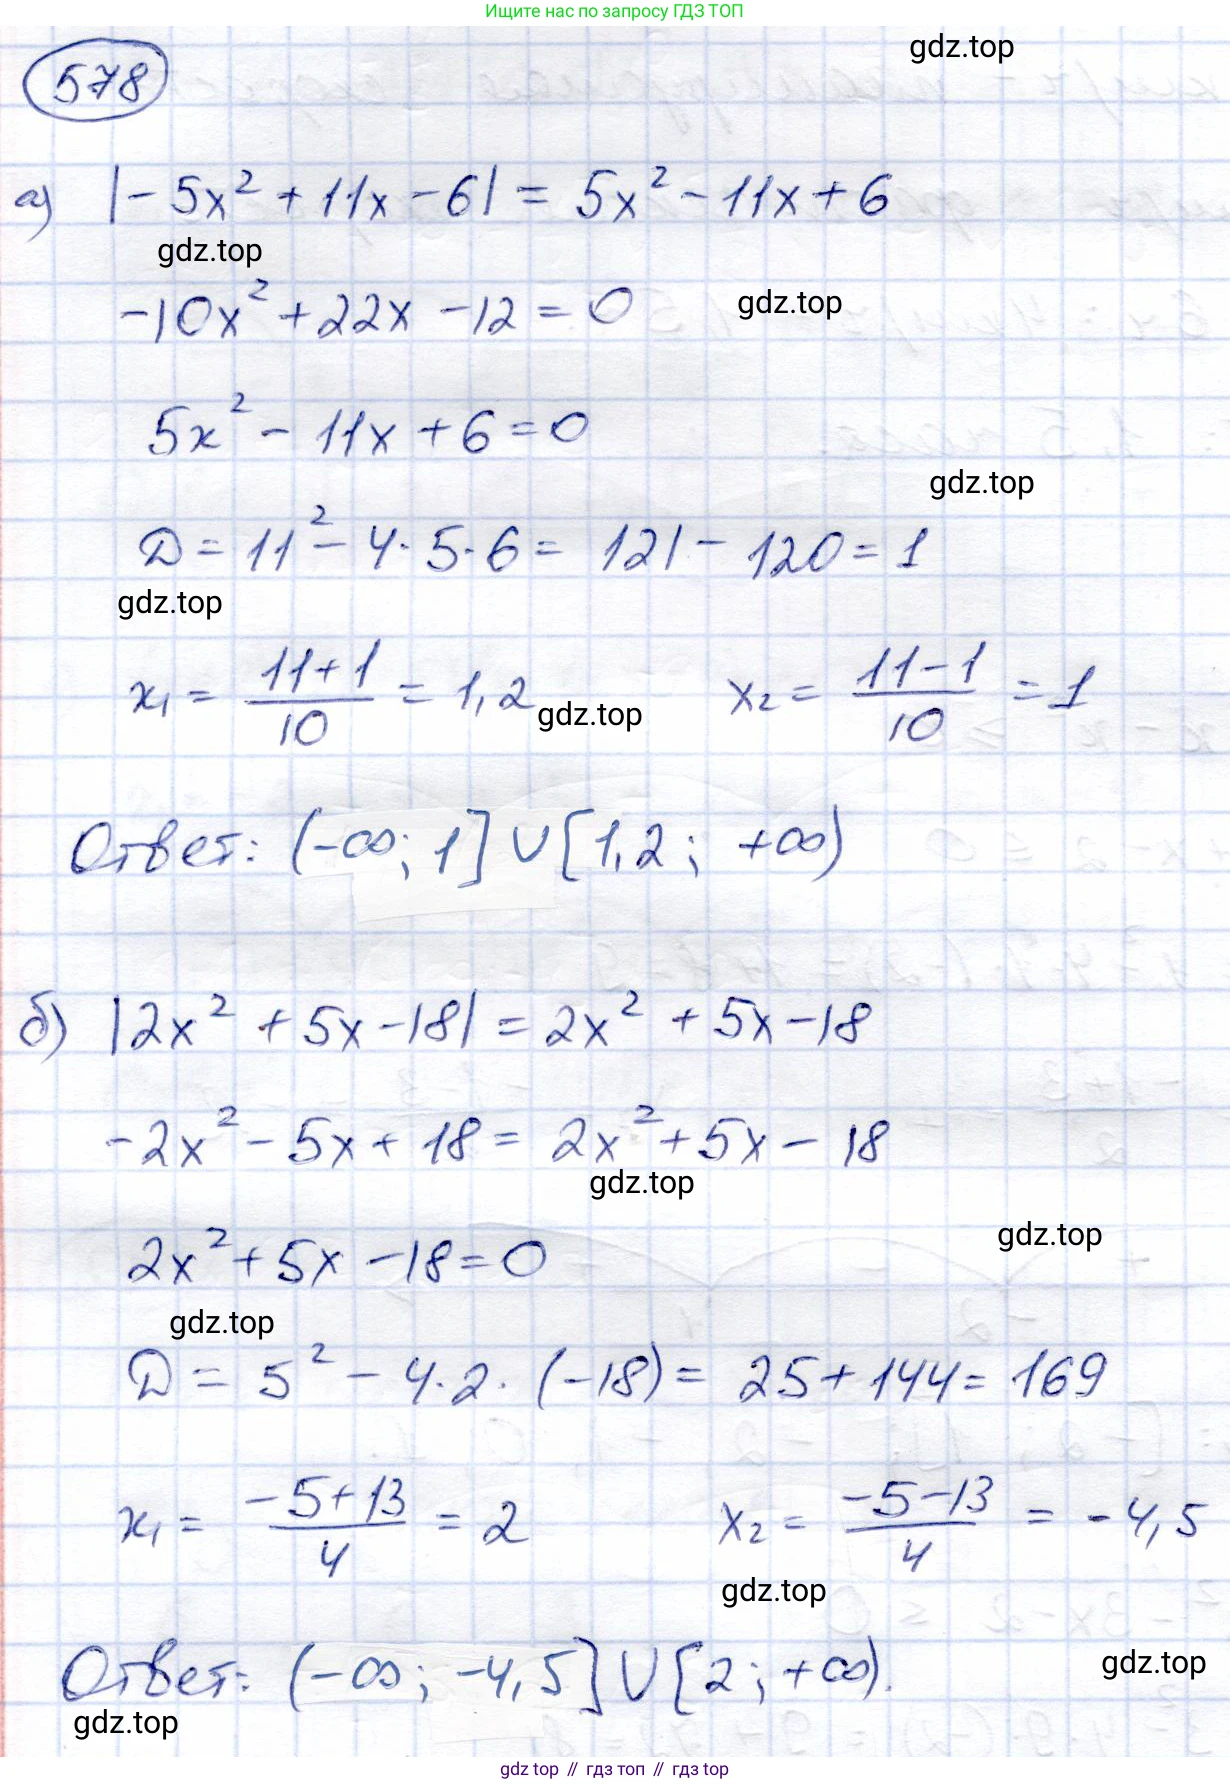 Ищите нас по запросу ГДЗ ТОП
gdz.top
578
а) |-5x² + 11x - 6| = 5x² - 11x + 6
gdz.top
-10x² + 22x - 12 = 0
gdz.top
5x² - 11x + 6 = 0
gdz.top
D = 11² - 4·5·6 = 121 - 120 = 1
gdz.top
x₁ = (11+1)/10 = 1,2 x₂ = (11-1)/10 = 1
gdz.top
Ответ: (-∞; 1] ∪ [1,2; +∞)
б) |2x² + 5x - 18| = 2x² + 5x - 18
-2x² - 5x + 18 = 2x² + 5x - 18
gdz.top
gdz.top
2x² + 5x - 18 = 0
gdz.top
D = 5² - 4·2·(-18) = 25 + 144 = 169
x₁ = (-5+13)/4 = 2 x₂ = (-5-13)/4 = -4,5
gdz.top
Ответ: (-∞; -4,5] ∪ [2; +∞).
gdz.top
gdz.top
gdz top // гдз топ // гдз top